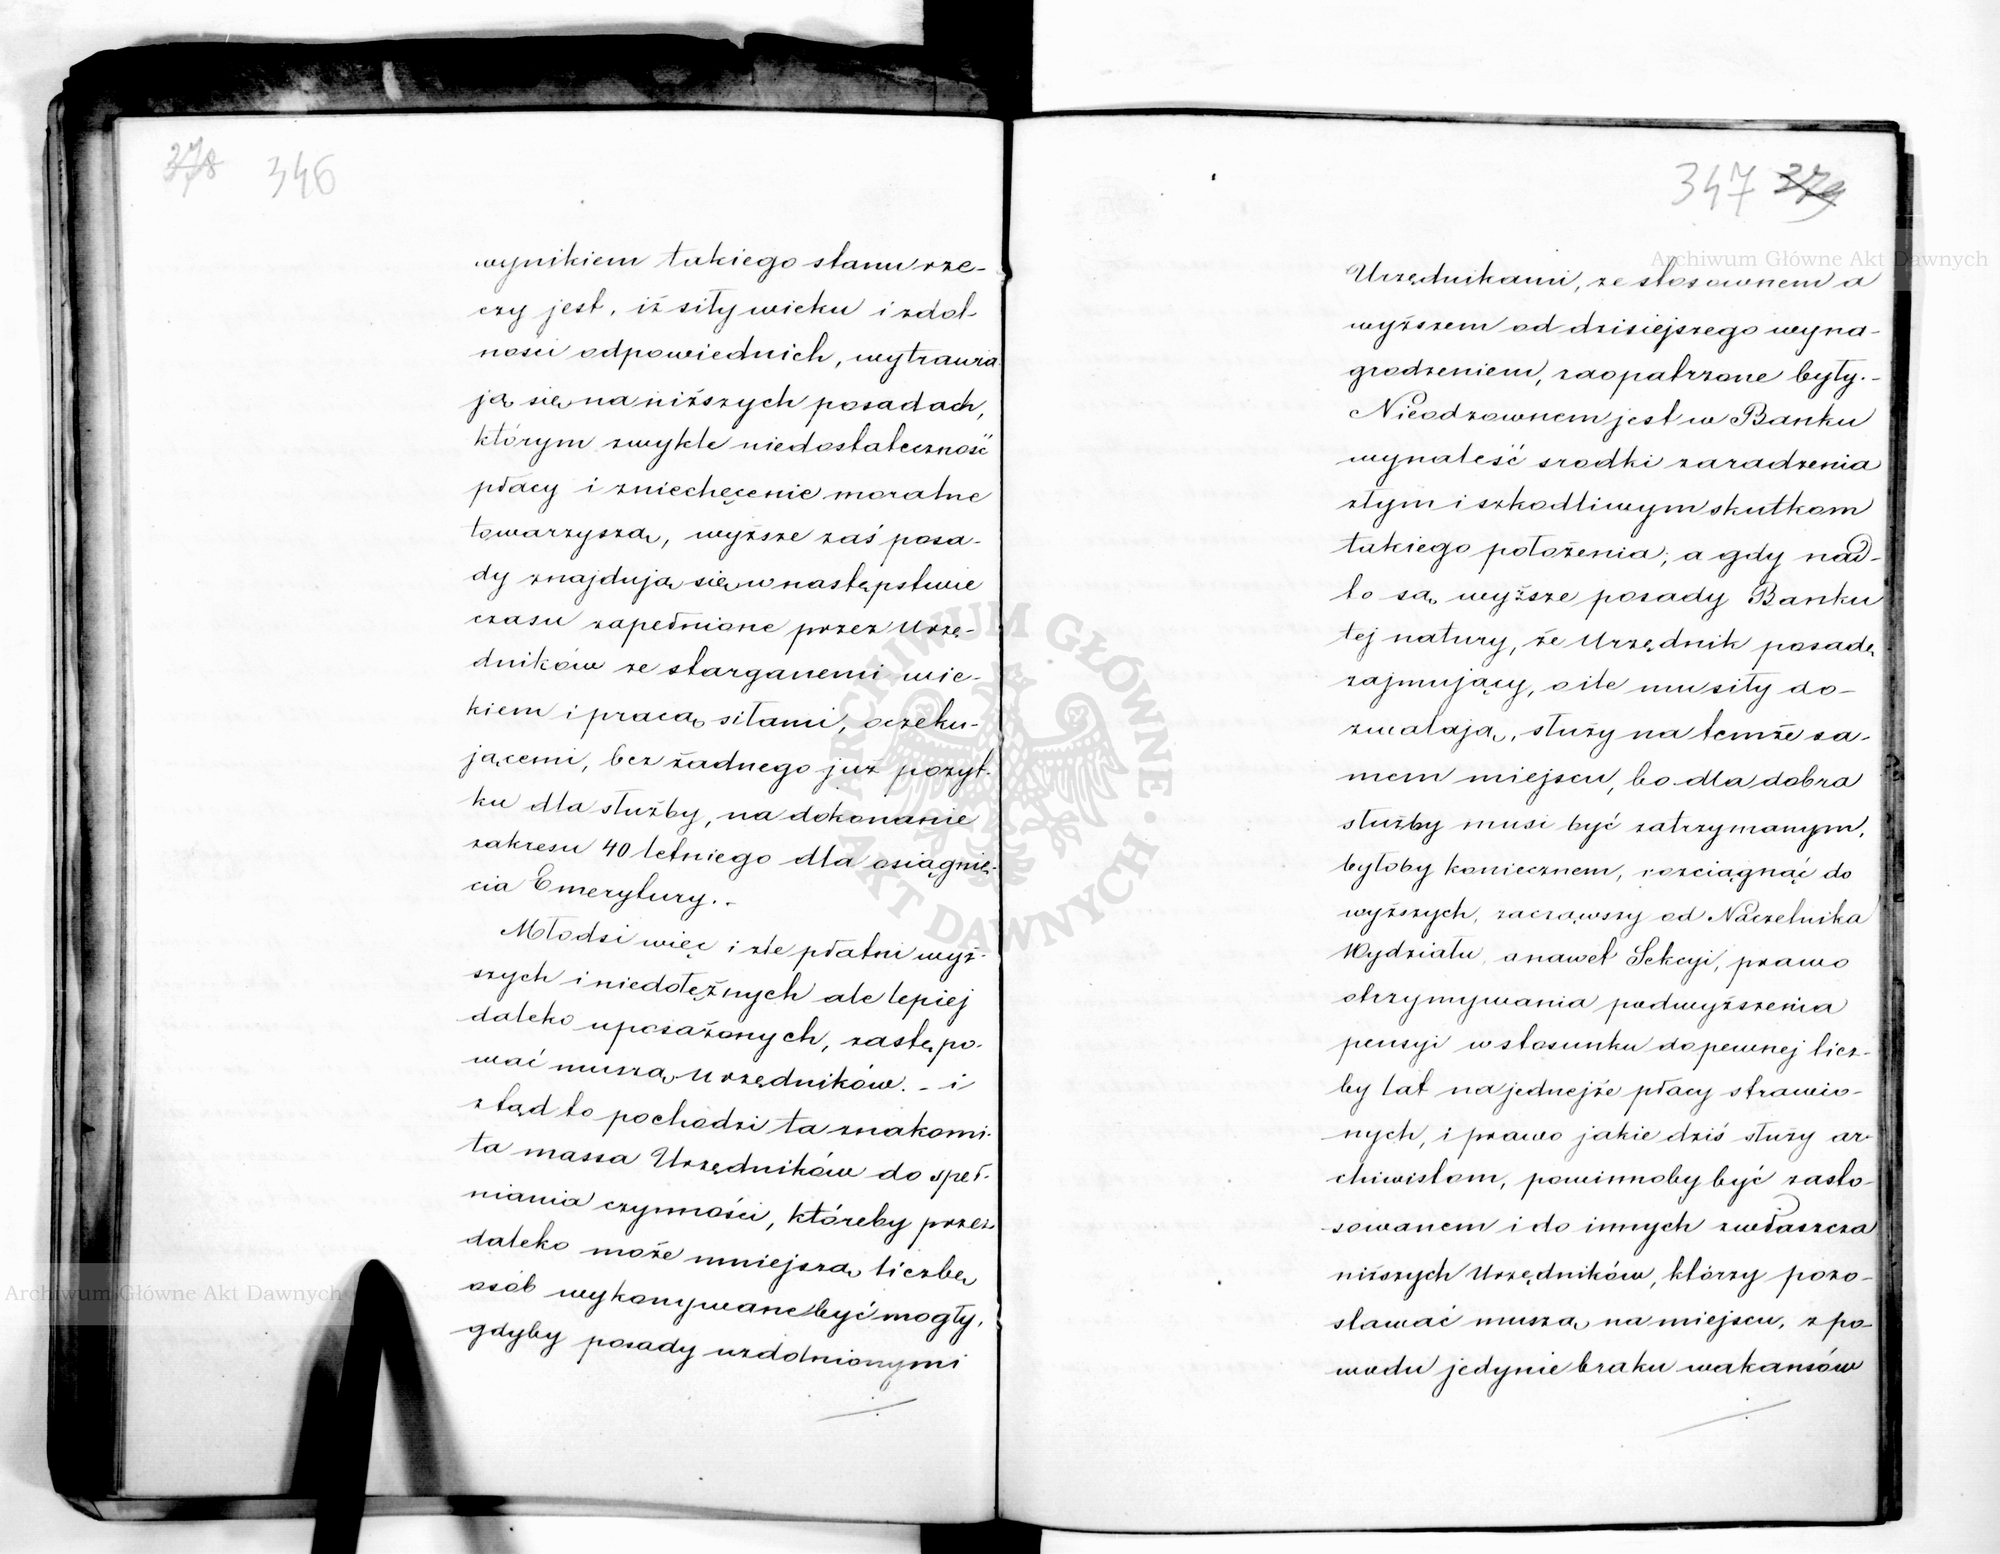 378 346
wynikiem takiego stanu rze-
czy jest, iż siły wieku i zdol-
ności odpowiednich, wytrawia
ją się na niższych posadach,
którym zwykle niedostateczność
płacy i zniechęcenie moralne
towarzyszą, wyższe zaś posa-
dy znajdują się w następstwie
czasu zapełnione przez Urzę-
dników ze starganemi wie-
kiem i pracą siłami, oczeku-
jącemi, bez żadnego już pożyt-
ku dla służby, na dokonanie
zakresu 40 letniego dla osiągnię-
cia Emerytury. -
Młodzi więc i źle płatni wyż-
szych i niedołężnych ale lepiej
daleko uposażonych, zastępo-
wać muszą Urzędników. - i
ztąd to pochodzi ta znakomi-
ta massa Urzędników do speł-
niania czynności, któreby przez
daleko może mniejszą liczbę
osób wykonywane być mogły,
gdyby posady uzdolnionymi
347 379
Urzędnikami, ze stosownem a
wyższem od dzisiejszego wyna-
grodzeniem, zaopatrzone były. -
Nieodzownem jest w Banku
wynaleść srodki zaradzenia
złym i szkodliwym skutkom
takiego położenia; a gdy nad-
to są wyższe posady Banku
tej natury, że Urzędnik posadę
zajmujący, o ile mu siły do-
zwalają, służy na temże sa-
mem miejscu, bo dla dobra
służby musi być zatrzymanym,
byłoby koniecznem, rozciągnąć do
wyższych, zacząwszy od Naczelnika
Wydziału, a nawet Sekcyi, prawo
otrzymywania podwyższenia
pensyi w stosunku do pewnej licz-
by lat na jednejże płacy strawio-
nych, i prawo jakie dziś służy ar-
chiwistom, powinnoby być zasto-
sowanem i do innych zwłaszcza
niższych Urzędników, którzy pozo-
stawać muszą na miejscu, z po-
wodu jedynie braku wakansów
Archiwum Główne Akt Dawnych
Archiwum Główne Akt Dawnych
ARCHIWUM GŁÓWNE AKT DAWNYCH